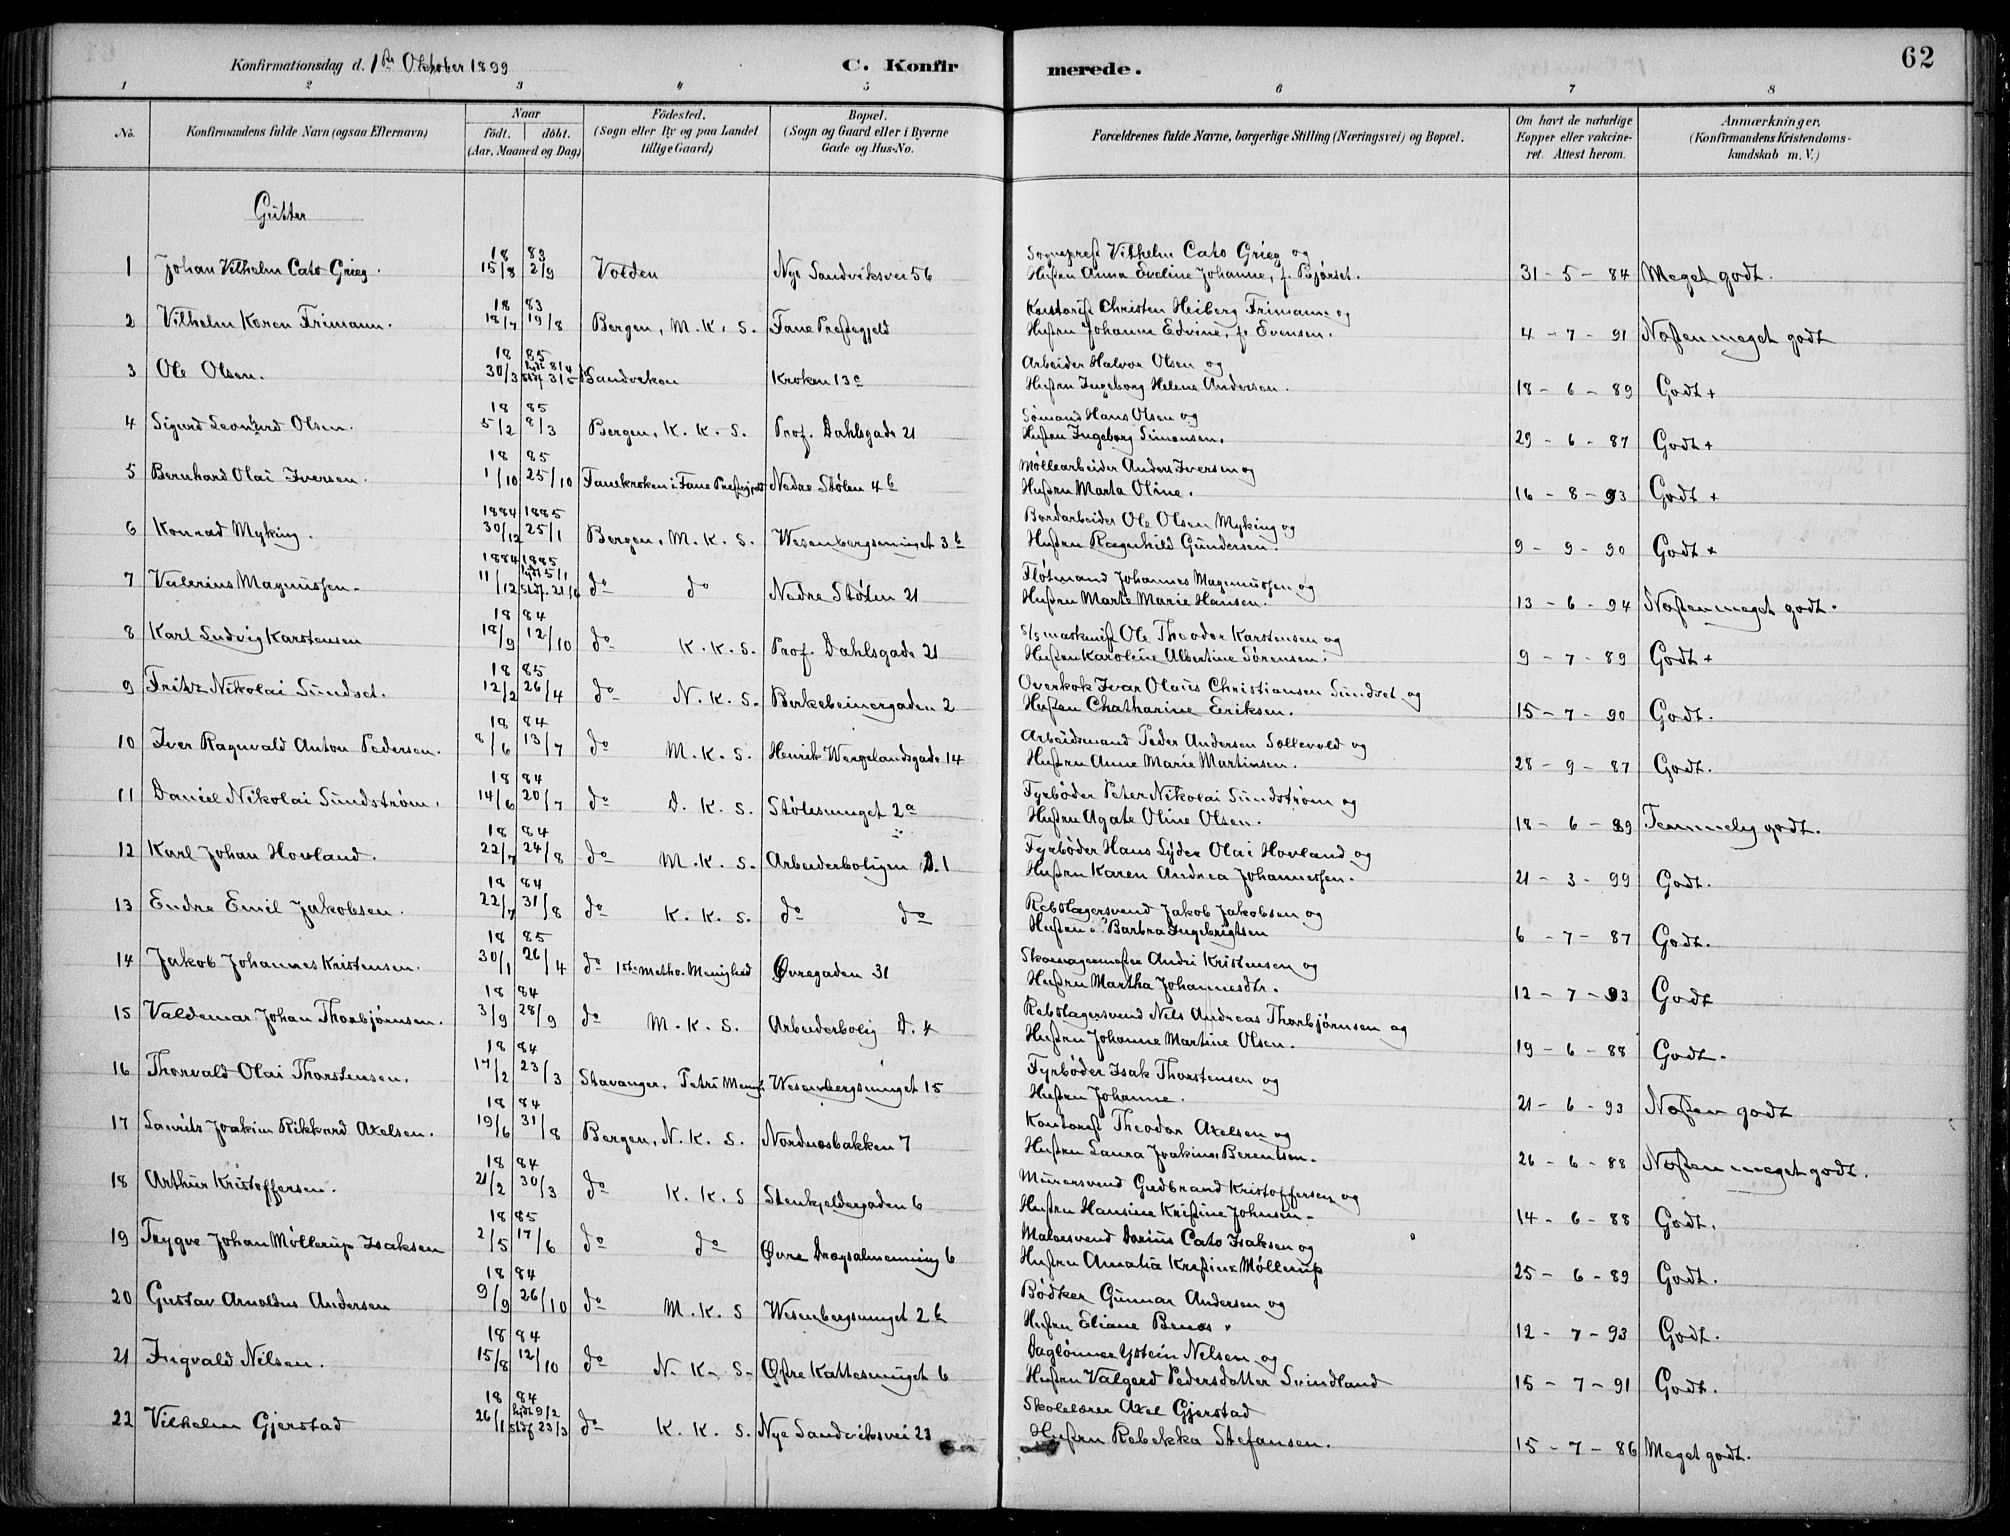 Konfirmationsdag d. 1ste Oktober 1899
C. Konfirmerede.
62
1 2 3 4 5 6 7 8
No.
Konfirmandens fulde Navn (ogsaa Efternavn)
Naar født. døbt. (Aar, Maaned og Dag)
Fødested. (Sogn eller By og paa Landet tillige Gaard)
Bopæl. (Sogn og Gaard eller i Byerne Gade og Hus-No.
Forældrenes fulde Navne, borgerlige Stilling (Næringsvei) og Bopæl.
Om havt de naturlige Kopper eller vakcineret. Attest herom.
Anmærkninger. (Konfirmandens Kristendomskundskab m. V.)
Gutter
1 Johan Vilhelm Cato Grieg. 1883 15/8 2/9 Volden Nye Sandviksvei 56 Sogneprest Vilhelm Cato Grieg og Hustru Anna Eveline Johanne, f. Bjørset. 31-5-84 Meget godt.
2 Vilhelm Koren Frimann. 1883 18/7 19/8 Bergen, M. K. S. Fane Prestegjeld Kontorist Christen Heiberg Frimann og Hustru Johanne Edvine, f. Evensen. 4-7-91 Næsten meget godt
3 Ole Olsen. 1885 30/3 hjdt 8/4 stdf. 3/5 Sandviken Kroken 13c Arbeider Halvor Olsen og Hustru Ingeborg Helene Andersen. 18-6-89 Godt +
4 Sigurd Leonard Olsen. 1885 5/2 8/3 Bergen, K. K. S. Prof. Dahlsgade 21 Sømand Hans Olsen og Hustru Ingeborg Simonsen. 29-6-87 Godt +
5 Bernhard Olai Iversen. 1885 1/10 25/10 Fanekroken i Fane Prestegjeld Nedre Stølen 4b Møllearbeider Anders Iversen og Hustru Marta Oline. 16-8-93 Godt +
6 Konrad Myking. 1884 1885 30/12 25/1 Bergen, M. K. S. Wesenbergsmuget 3b Bordarbeider Ole Olsen Myking og Hustru Ragnhild Gundersen. 9-9-90 Godt +
7 Valerius Magnussen. 1884 1885 11/12 hjdt 5/1 stdf. 21/4 do do Nedre Stølen 21 Fløtmand Johannes Magnussen og Hustru Marte Marie Hansen. 13-6-94 Næsten meget godt.
8 Karl Ludvig Karstensen 1884 18/9 12/10 do K. K. S. Prof. Dahlsgade 21 S/S maskinist Ole Theodor Karstensen og Hustru Karoline Albertine Sørensen. 9-7-89 Godt +
9 Fritz Nikolai Sundset. 1885 12/2 26/4 do N. K. S. Birkebeinergaden 2 Overkok Ivar Olaus Christiansen Sundset og Hustru Chatharine Eriksen. 15-7-90 Godt.
10 Iver Ragnvald Anton Pedersen. 1884 8/6 13/7 do M. K. S. Henrik Wergelandsgade 14 Arbeidsmand Peder Andersen Sollevold og Hustru Anne Marie Martinsen. 28-9-87 Godt.
11 Daniel Nikolai Sundstrøm. 1884 14/6 20/7 do D. K. S. Stølesmuget 2a Fyrbøder Peter Nikolai Sundstrøm og Hustru Agate Oline Olsen. 18-6-89 Temmelig godt.
12 Karl Johan Hovland. 1884 22/7 24/8 do M. K. S. Arbeiderboligen D. 1 Fyrbøder Hans Lyder Olai Hovland og Hustru Karen Andrea Johannessen. 21-3-99 Godt.
13 Endre Emil Jakobsen. 1884 22/7 31/8 do K. K. S. do do Rebslagersvend Jakob Jakobsen og Hustru Barbra Ingebrigtsen 6-7-87 Godt.
14 Jakob Johannes Kristensen. 1885 30/1 26/4 do 1ste Metho. Menighed Øvregaden 31 Skomagermester Andri Kristensen og Hustru Martha Johannesdtr. 12-7-93 Godt
15 Valdemar Johan Thorbjørnsen. 1884 3/9 28/9 do M. K. S. Arbeiderbolig D. 4 Rebslagersvend Nels Andreas Thorbjørnsen og Hustru Johanne Martine Olsen. 19-6-88 Godt.
16 Thorvald Olai Thorstensen. 1884 17/2 23/3 Stavanger, Petri Menigh. Wesenbergsmuget 15 Fyrbøder Isak Thorstensen og Hustru Johanne. 21-6-93 Næsten godt
17 Laurits Joakim Rikkard Axelsen. 1884 19/6 31/8 Bergen, N. K. S. Nordnæsbakken 7 Kontorist Theodor Axelsen og Hustru Laura Joakine Berentsen. 26-6-88 Næsten meget godt.
18 Arthur Kristoffersen. 1884 21/2 30/3 do K. K. S Stenkjeldergaden 6 Murersvend Gudbrand Kristoffersen og Hustru Hansine Kristine Johnsen. 14-6-88 Godt.
19 Trygve Johan Møllerup Isaksen 1885 2/5 17/6 do do Øvre Dragsalmenning 6 Malersvend Darius Cato Isaksen og Hustru Amalia Kristine Møllerup 25-6-89 Godt.
20 Gustav Arnoldus Andersen 1884 9/9 26/10 do M. K. S Wesenbergsmuget 2b Bødker Gunnar Andersen og Hustru Eliane Benos. 12-7-93 Godt.
21 Ingvald Nilsen. 1884 15/8 12/10 do N. K. S. Øfre Kattesmuget 6 Daglønner Ystein Nelsen og Hustru Valgerd Pedersdatter Svindland 15-7-91 Godt.
22 Vilhelm Gjerstad 1884 26/1 hjdt 9/2 stdf 23/3 do K. K. S. Nye Sandviksvei 23 Skolelærer Axel Gjerstad Hustru Rebekka Stefansen. 15-7-86 Meget godt.